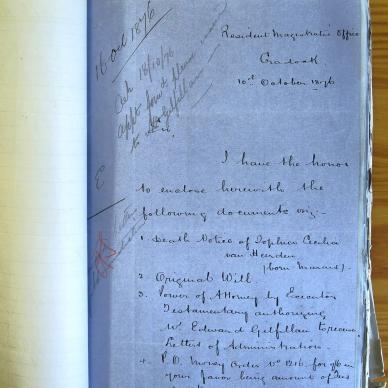 16 Oct 1876
Ack 16/10/76
to Mr Gilfillan
Resident Magistrate's Office
Cradock
10th October 1876
Sir,
I have the honor
to enclose herewith the
following documents viz:-
1. Death Notice of Sophia Cecilia
van Heerden
(born Marais).
2. Original Will
3. Power of Attorney by Executor
Testamentary authorizing
Mr Edward Gilfillan to receive
Letters of Administration.
4. P.O. Money Order No 1216 for
your favor being amount of